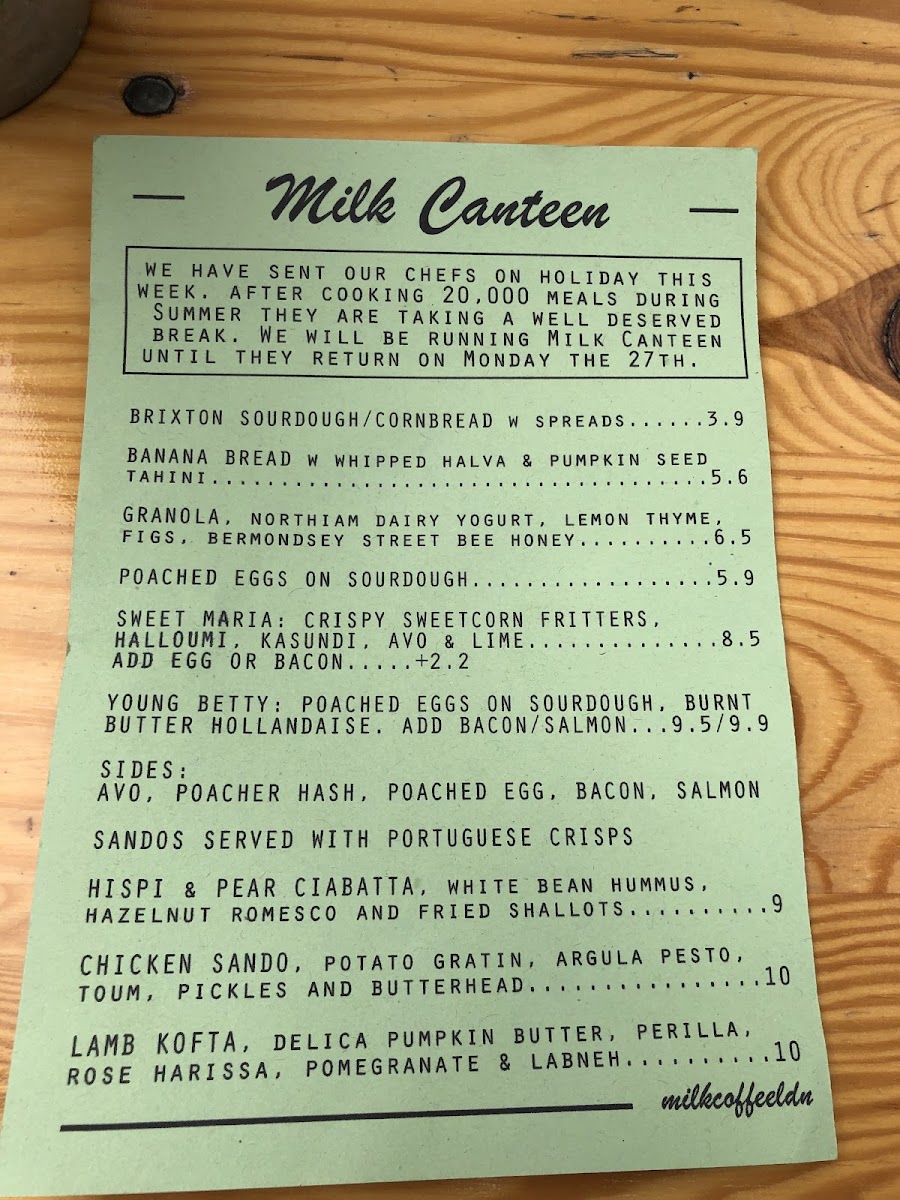 Milk Canteen
WE HAVE SENT OUR CHEFS ON HOLIDAY THIS
WEEK. AFTER COOKING 20,000 MEALS DURING
SUMMER THEY ARE TAKING A WELL DESERVED
BREAK. WE WILL BE RUNNING MILK CANTEEN
UNTIL THEY RETURN ON MONDAY THE 27TH.
BRIXTON SOURDOUGH/CORNBREAD W SPREADS......3.9
BANANA BREAD W WHIPPED HALVA & PUMPKIN SEED
TAHINI.....................................5.6
GRANOLA, NORTHIAM DAIRY YOGURT, LEMON THYME,
FIGS, BERMONDSEY STREET BEE HONEY..........6.5
POACHED EGGS ON SOURDOUGH..................5.9
SWEET MARIA: CRISPY SWEETCORN FRITTERS,
HALLOUMI, KASUNDI, AVO & LIME..............8.5
ADD EGG OR BACON.....+2.2
YOUNG BETTY: POACHED EGGS ON SOURDOUGH, BURNT
BUTTER HOLLANDAISE. ADD BACON/SALMON...9.5/9.9
SIDES:
AVO, POACHER HASH, POACHED EGG, BACON, SALMON
SANDOS SERVED WITH PORTUGUESE CRISPS
HISPI & PEAR CIABATTA, WHITE BEAN HUMMUS,
HAZELNUT ROMESCO AND FRIED SHALLOTS..........9
CHICKEN SANDO, POTATO GRATIN, ARGULA PESTO,
TOUM, PICKLES AND BUTTERHEAD................10
LAMB KOFTA, DELICA PUMPKIN BUTTER, PERILLA,
ROSE HARISSA, POMEGRANATE & LABNEH..........10
milkcoffeeldn